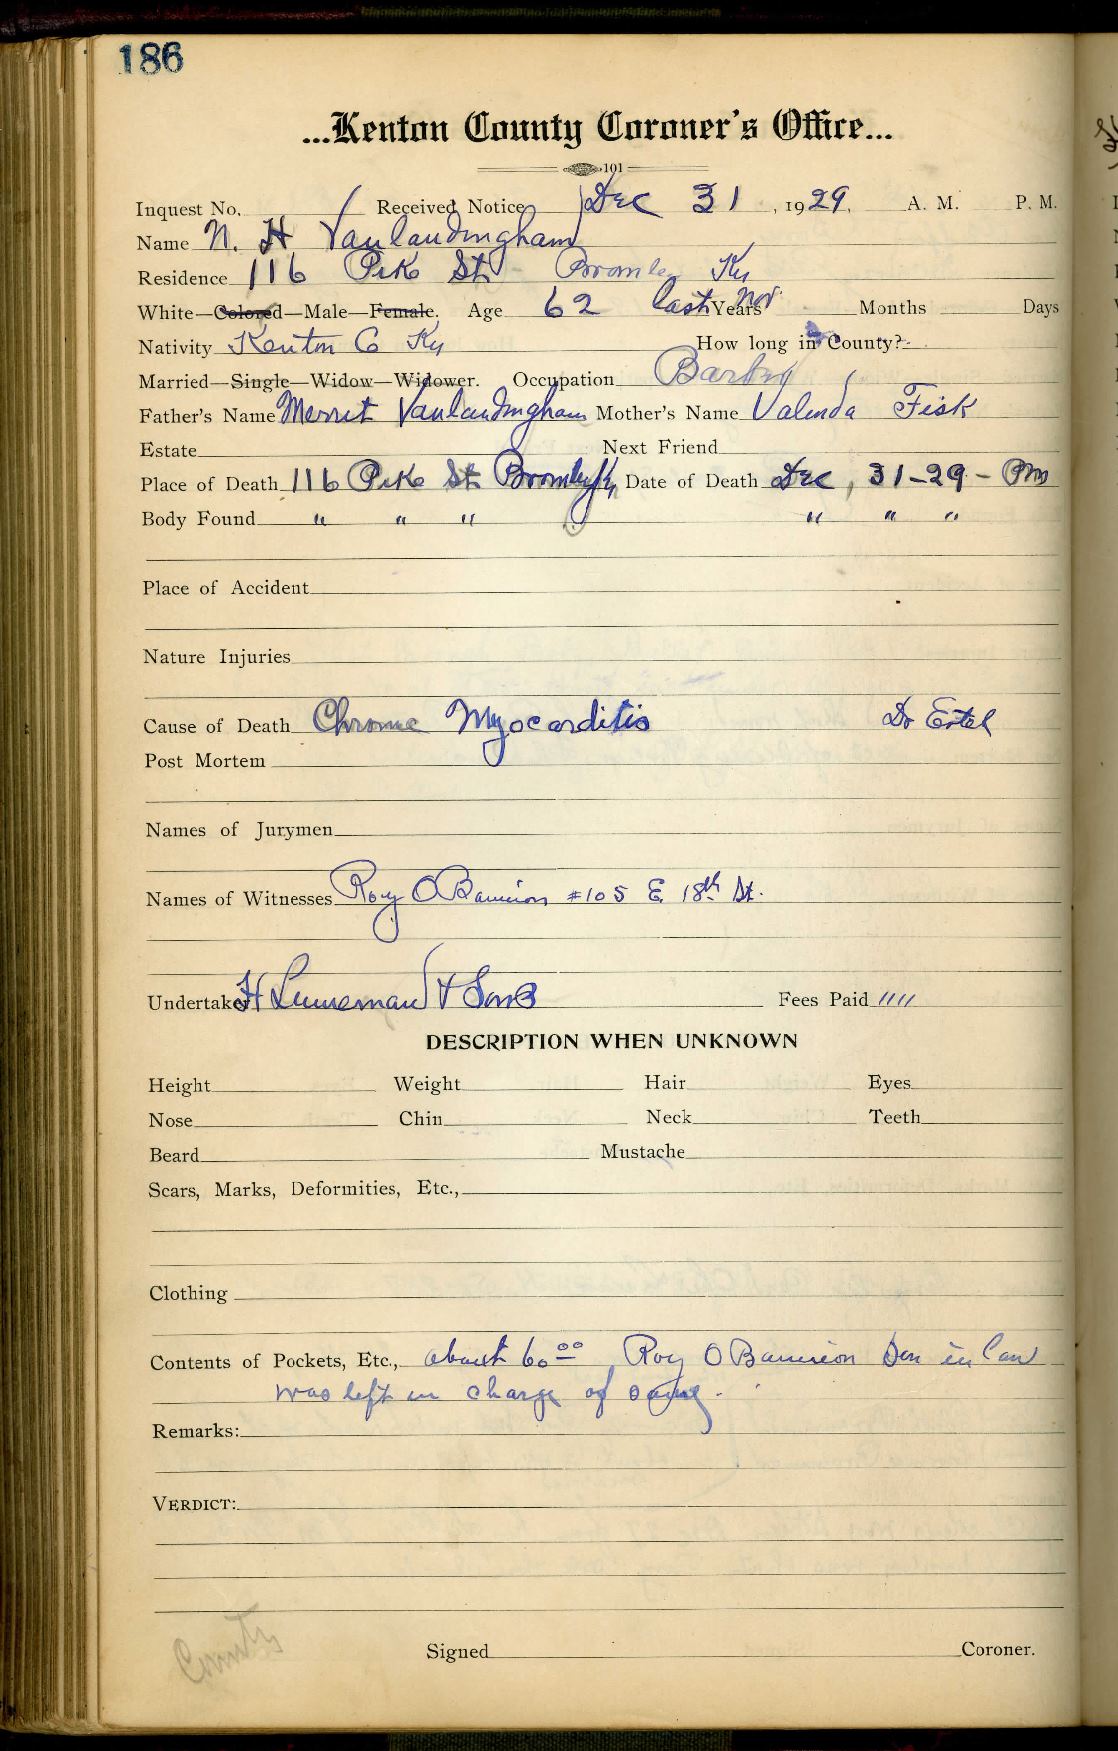 186
...Kenton County Coroner's Office...
101
Inquest No. Received Notice Dec 31, 1929, A. M. P. M.
Name N. H Vanlandingham
Residence 116 Pike St - Bromley Ky
White—Colored—Male—Female. Age 62 last Years Nov Months Days
Nativity Kenton Co Ky How long in County?
Married—Single—Widow—Widower. Occupation Barber
Father's Name Merrit Vanlandingham Mother's Name Valinda Fisk
Estate Next Friend
Place of Death 116 Pike St. Bromley Ky, Date of Death Dec, 31-29 - PM
Body Found " " " " " "
Place of Accident
Nature Injuries
Cause of Death Chronic Myocarditis Dr Ertel
Post Mortem
Names of Jurymen
Names of Witnesses Roy O #105 E. 18th St.
Undertaker H Linneman & Sons Fees Paid ////
DESCRIPTION WHEN UNKNOWN
Height Weight Hair Eyes
Nose Chin Neck Teeth
Beard Mustache
Scars, Marks, Deformities, Etc.,
Clothing
Contents of Pockets, Etc., about 60 00 Roy O Son in law
was left in charge of same.
Remarks:
VERDICT:
Signed Coroner.
County